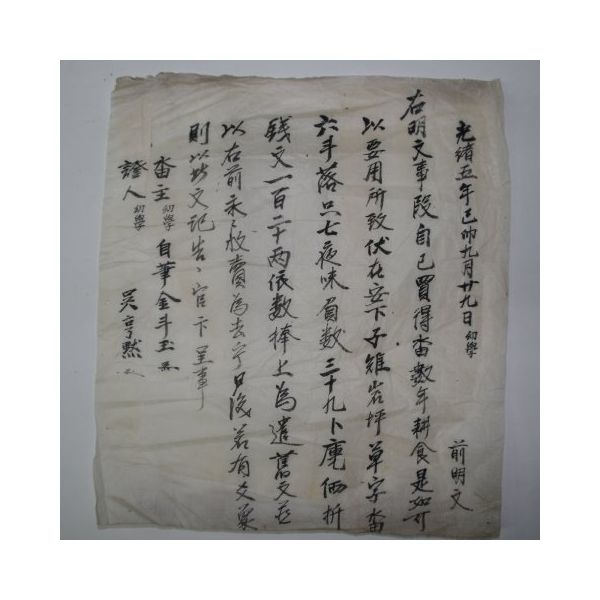 光緖五年己卯九月廿九日 幼學 前明文
右明文事段自己買得畓數年耕食是如可
以要用所致伏在安下子雉岩坪草字畓
六斗落只七夜味負數三十九卜庫価折
錢文一百二十兩依數捧上爲遣舊文並
以右前永永放賣爲去乎日後若有爻象
則以此文記告官卞呈事
畓主 幼學 自筆 金斗玉
證人 幼學 吳亨默